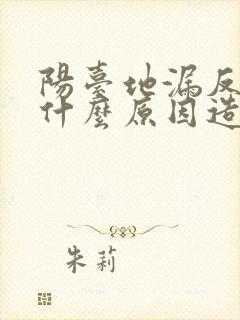 陽臺地漏反
什麼原因造
朱莉